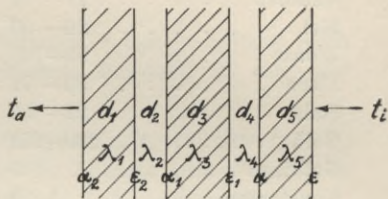 t_a d_1 d_2 d_3 d_4 d_5 t_i
λ_1 λ_2 λ_3 λ_4 λ_5
α_2 ε_2 α_1 ε_1 α ε